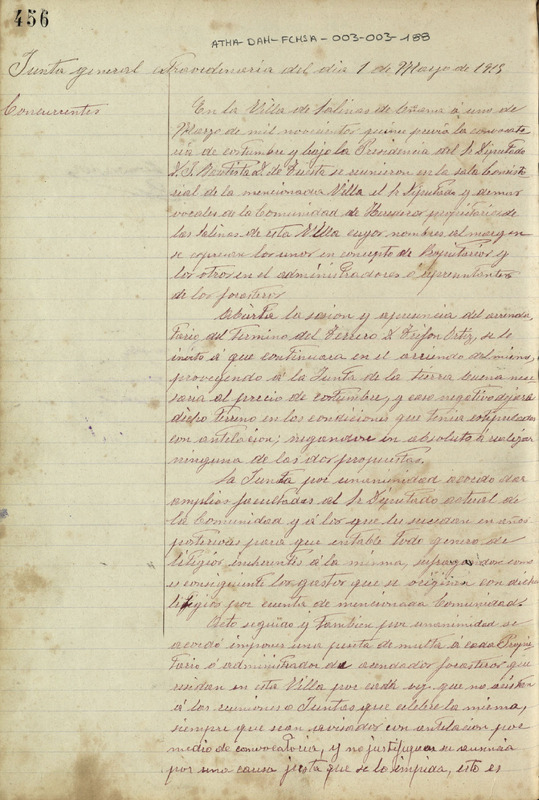 456
ATHA-DAH-FCHSA-003-003-188
Junta general extraordinaria del dia 1 de Marzo de 1915
Concurrentes
En la Villa de Salinas de Añana á uno de
Marzo de mil novecientos quince previa la convocato
ria de costumbre y bajo la Presidencia del Sr Diputado
se reunieron en la sala Consisto
rial de la mencionada Villa el Sr Diputado y demas
vocales de la Comunidad de Herederos propietarios de
las Salinas de esta Villa cuyos nombres al margen
se expresan los unos en concepto de Propietarios y
los otros en el de administradores ó representantes
de los forasteros
Abierta la sesion y á presencia del arrenda
tario del termino del Terrero D. Trifon Ortiz, se le
invitó á que continuara en el arriendo del mismo,
proveyendo á la Junta de la tierra buena nece
saria al precio de costumbre, y caso negativo dejara
dicho terreno en las condiciones que tenia estipuladas
con antelacion; negandose en absoluto á
ninguna de las dos propuestas.
La Junta por unanimidad acordo dar
amplias facultades al Sr Diputado actual de
la Comunidad y á los que le sucedan en años
posteriores para que entable todo genero de
litigios inherentes á la misma, sufragandose como
es consiguiente los gastos que se originen con dichos
litigios por cuenta de mencionada Comunidad.
Acto seguido y tambien por unanimidad se
acordó imponer una junta de multa á cada Propie
tario ó administrador de forasteros que
residan en esta Villa por cada vez que no asistan
á las reuniones o Juntas que celebre la misma,
siempre que sean avisados con antelacion por
medio de convocatoria, y no justifiquen su ausencia
por una causa justa que se lo impida, esto es